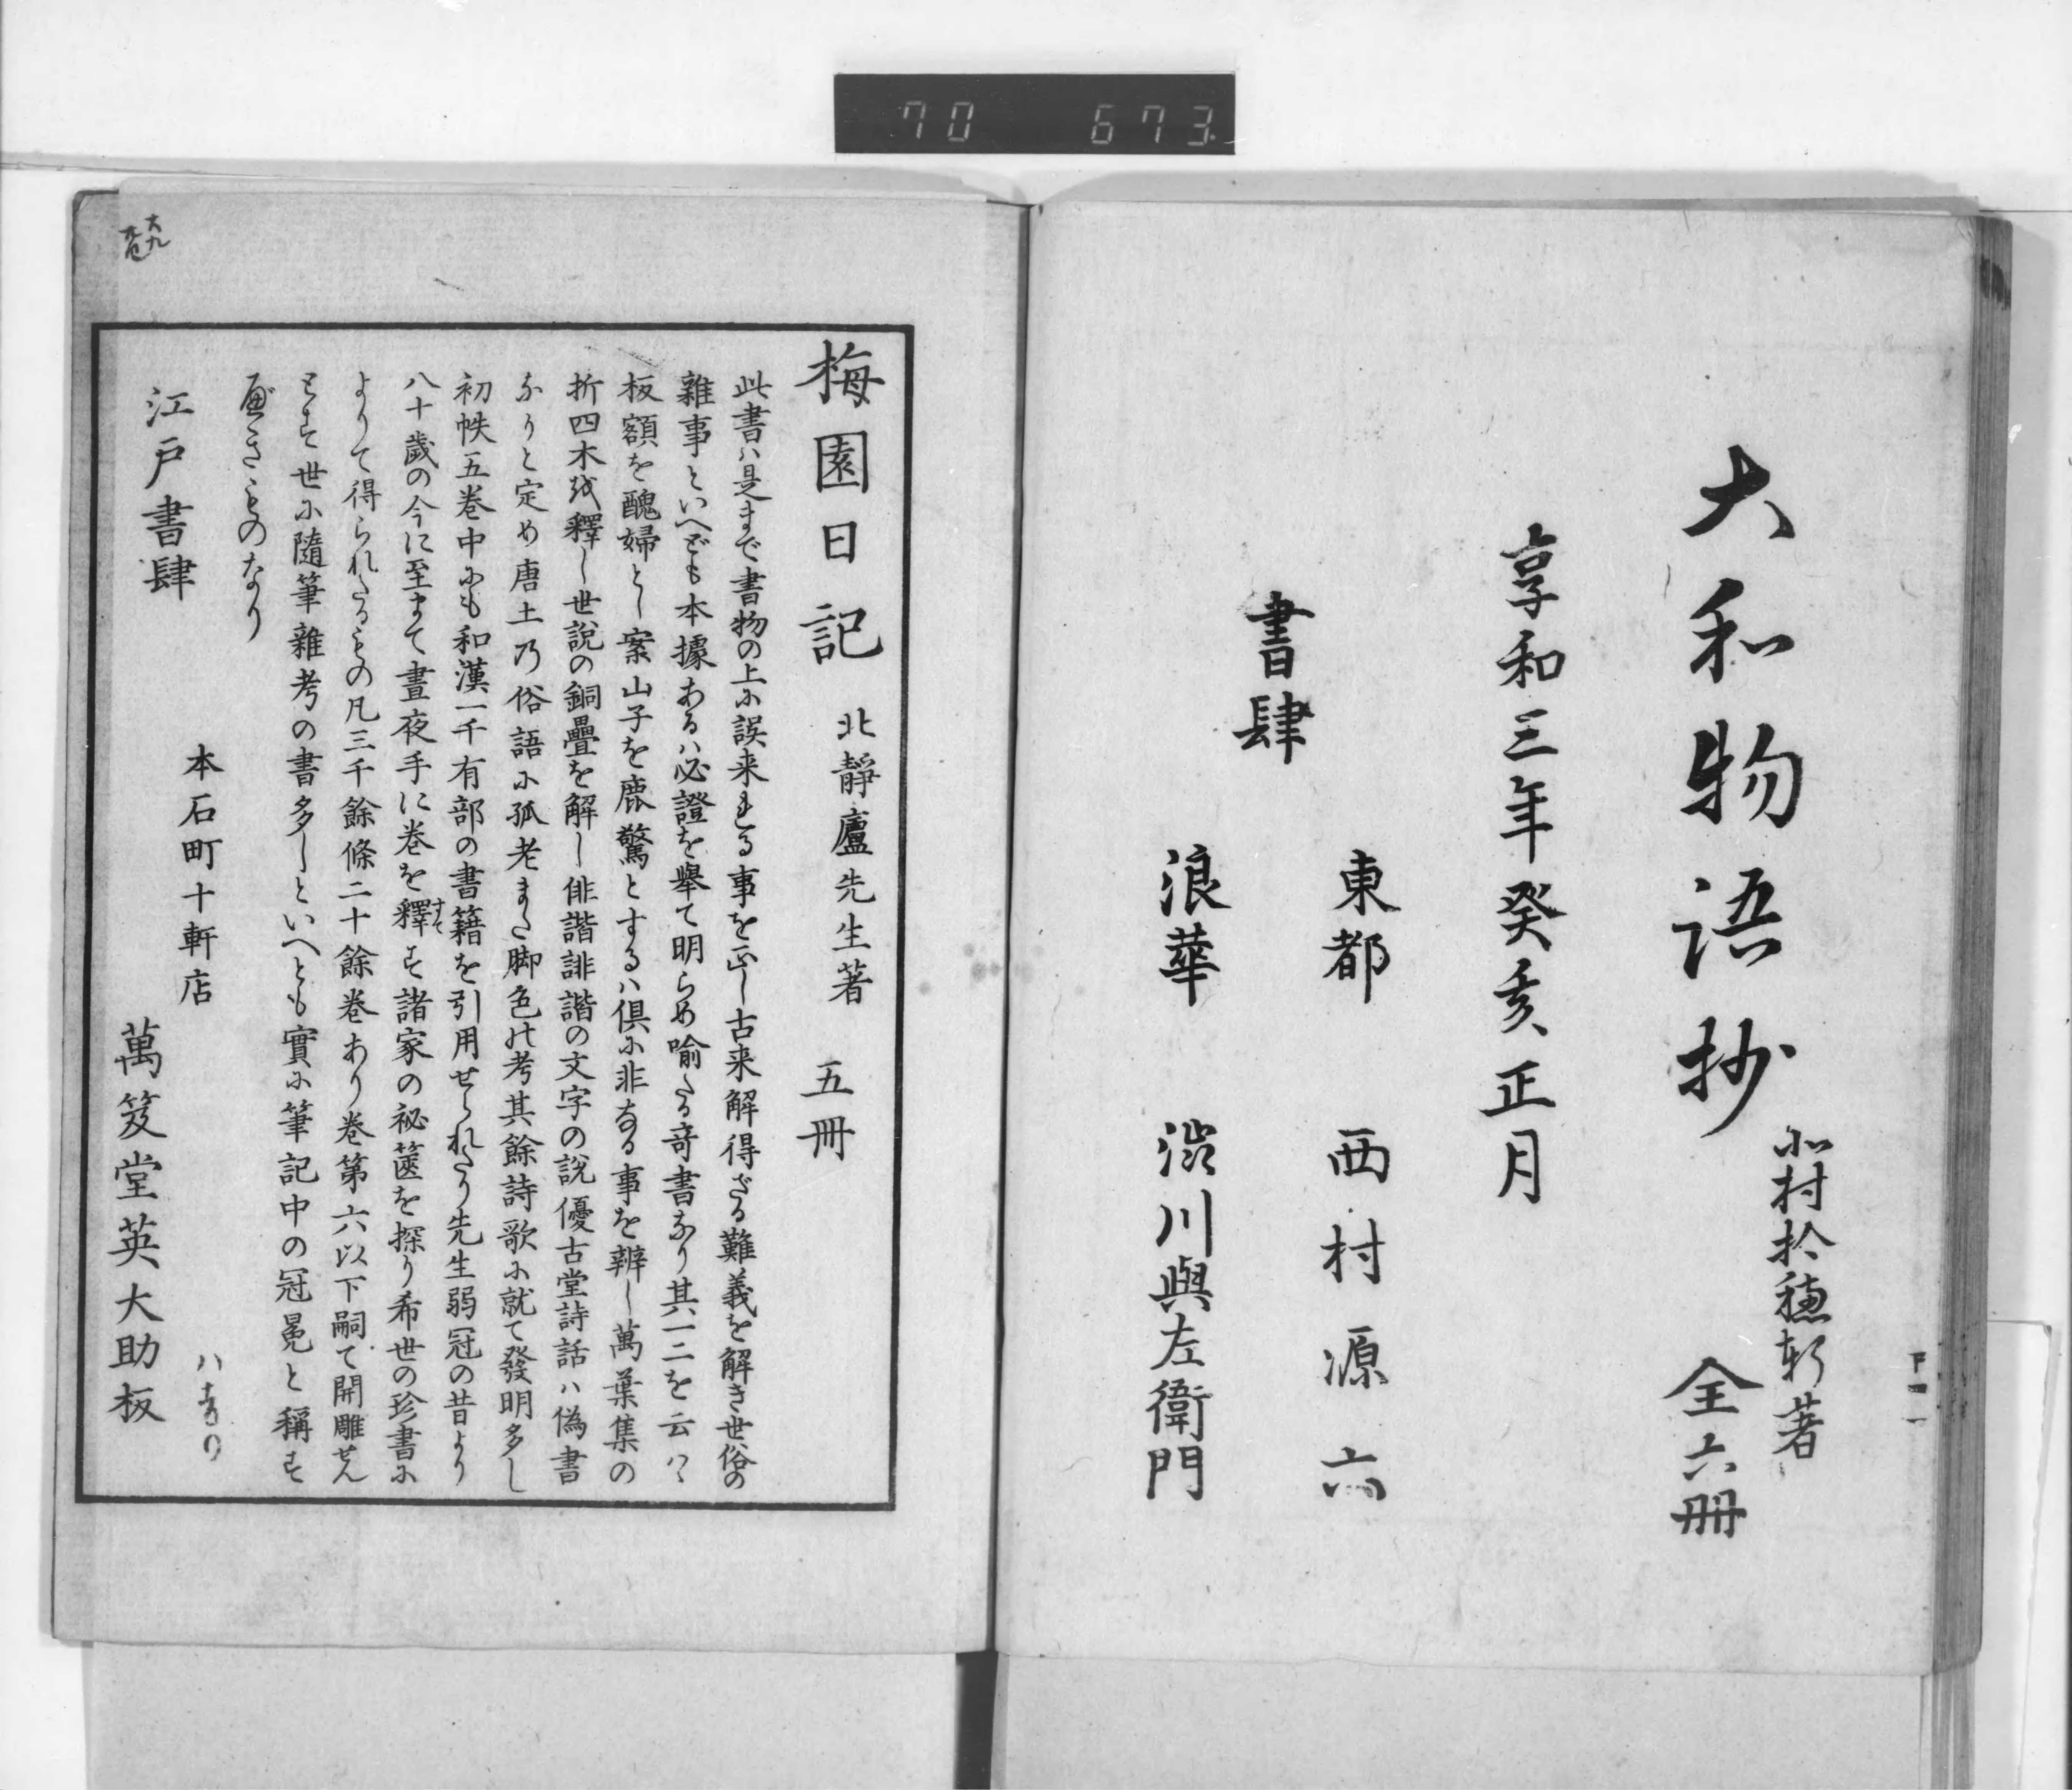 70 673
大和物語抄
北村拾穂軒著
全六冊
享和三年癸亥正月
書肆
東都 西村源六
浪華 渋川與左衛門
梅園日記 北靜廬先生著 五冊
此書ハ是まで書物の上に誤来れる事を正し古来解得ざる難義を解き世俗の
雜事といへども本據あるハ必證を舉て明らめ喻たる竒書なり其一二を云ハヾ
板額を醜婦とし案山子を鹿驚とするハ倶に非なる事を辨し萬葉集の
折四木を釋し世說の銅疊を解し俳諧誹諧の文字の說優古堂詩話ハ偽書
なりと定め唐土の俗語に孤老また脚色の考其餘詩歌に就て發明多し
初帙五卷中にも和漢一千有部の書籍を引用せられたり先生弱冠の昔より
八十歲の今に至まて晝夜手に卷を釋す諸家の祕篋を探り希世の珍書に
すて
よりて得られたるもの凡三千餘條二十餘卷あり卷第六以下嗣て開雕せん
とす世に隨筆雜考の書多しといへとも實に筆記中の冠冕と稱す
べきものなり
江戸書肆
本石町十軒店
萬笈堂英大助板